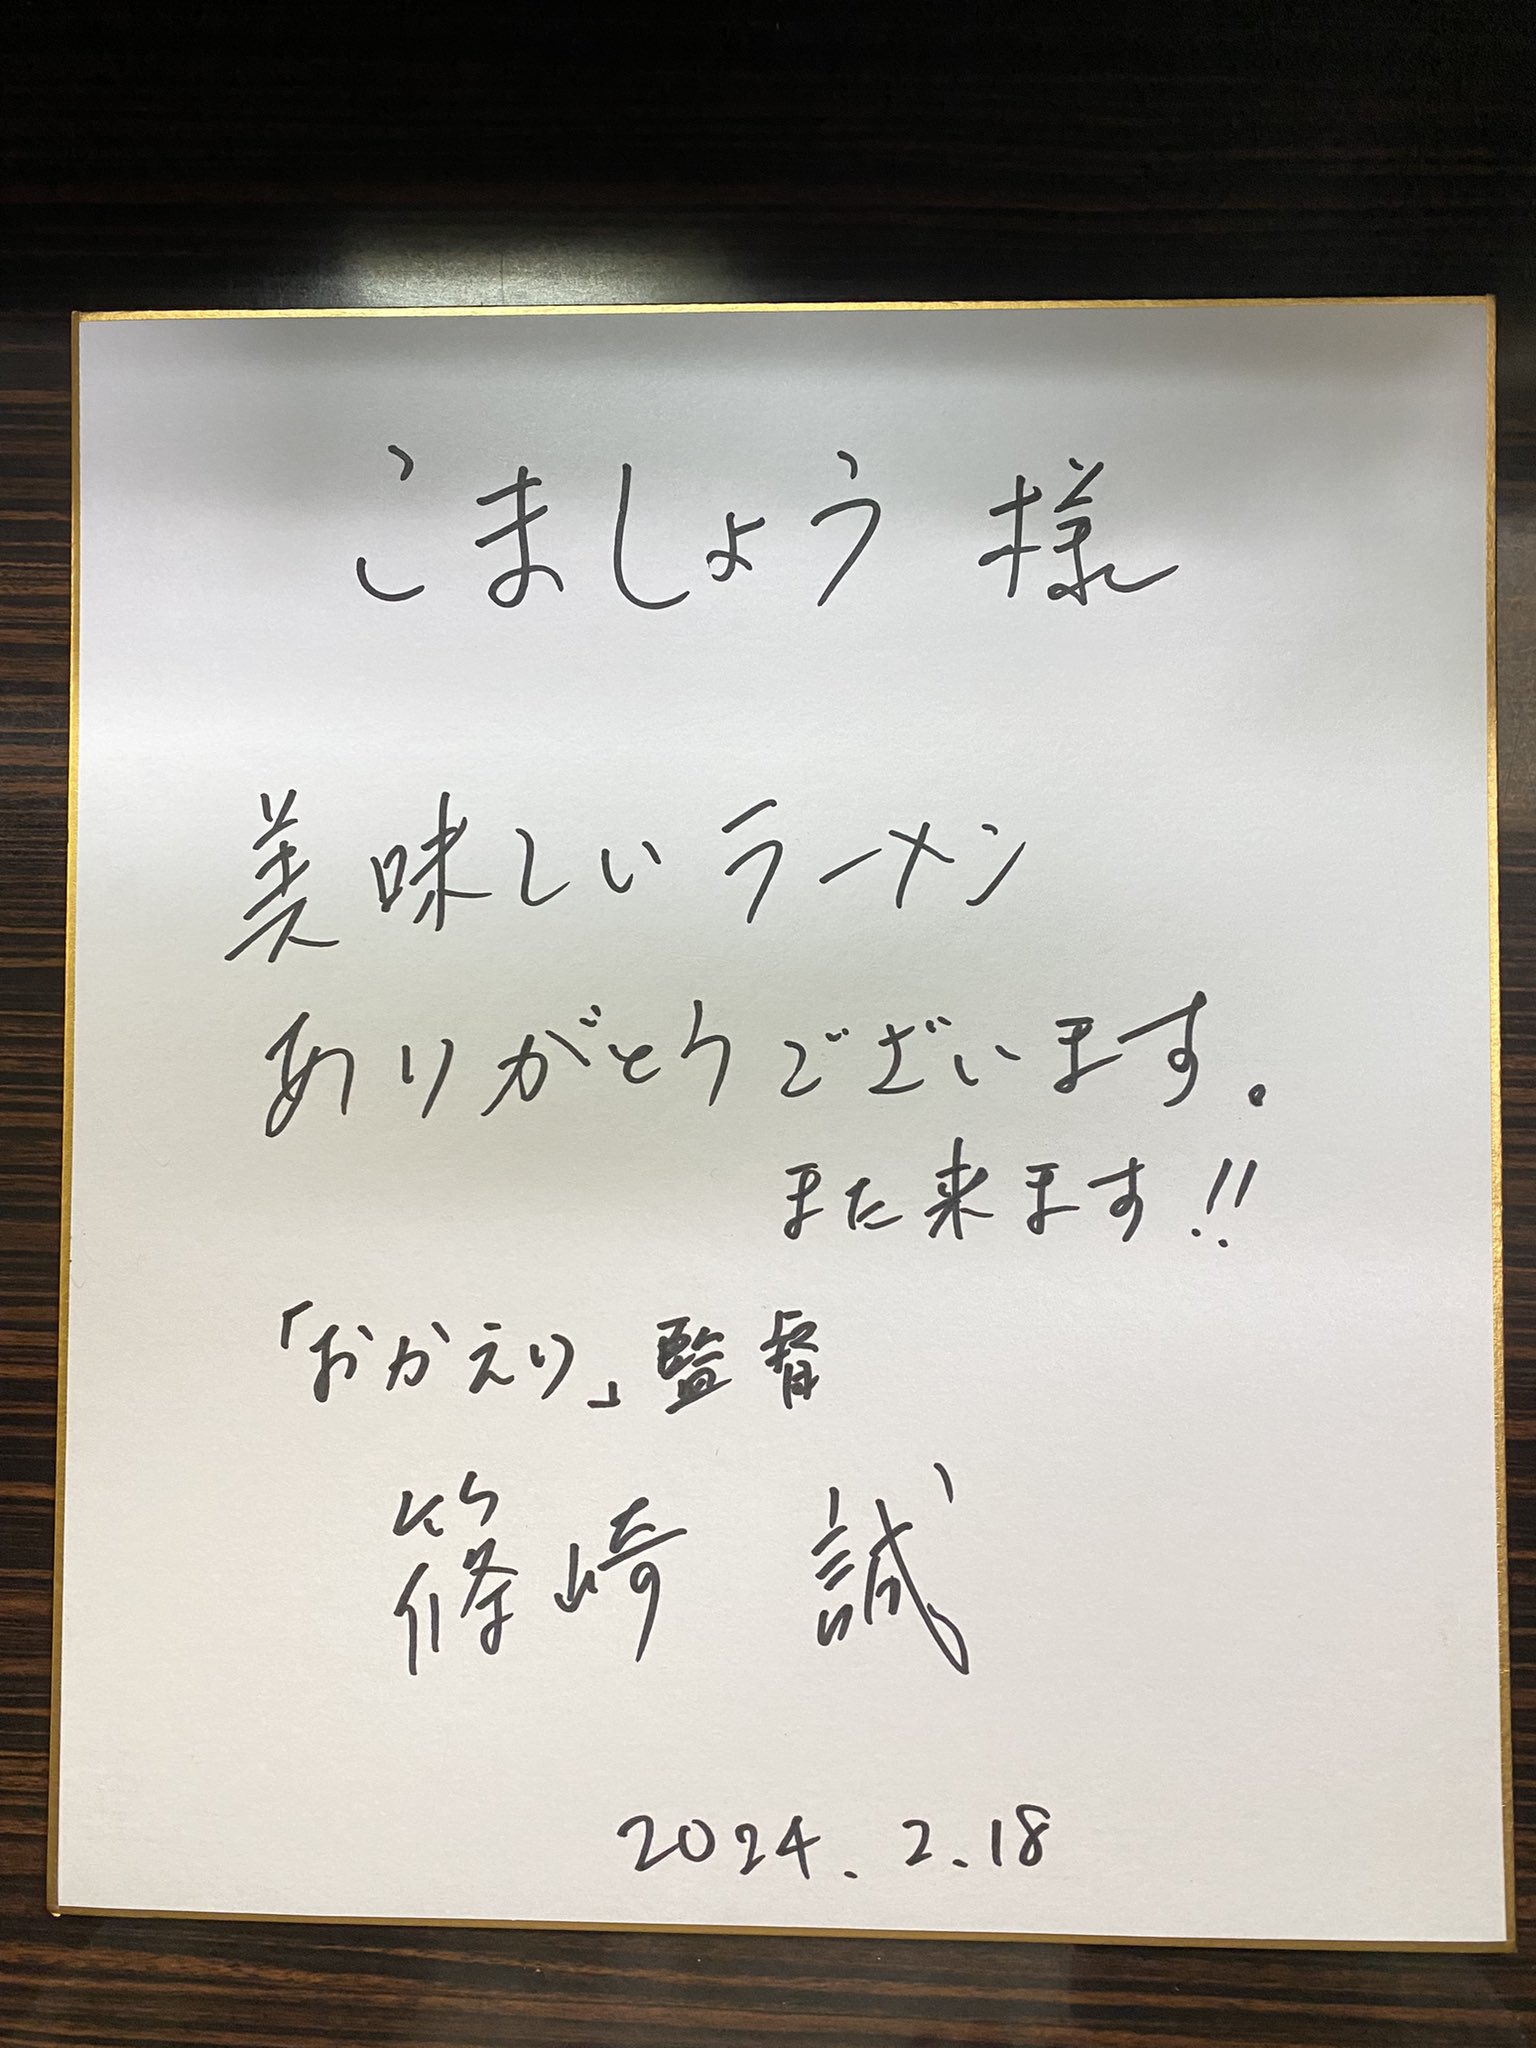 こましょう 様
美味しいラーメン
ありがとうございます。
また来ます!!
「おかえり」監督
篠崎 誠
2024.2.18